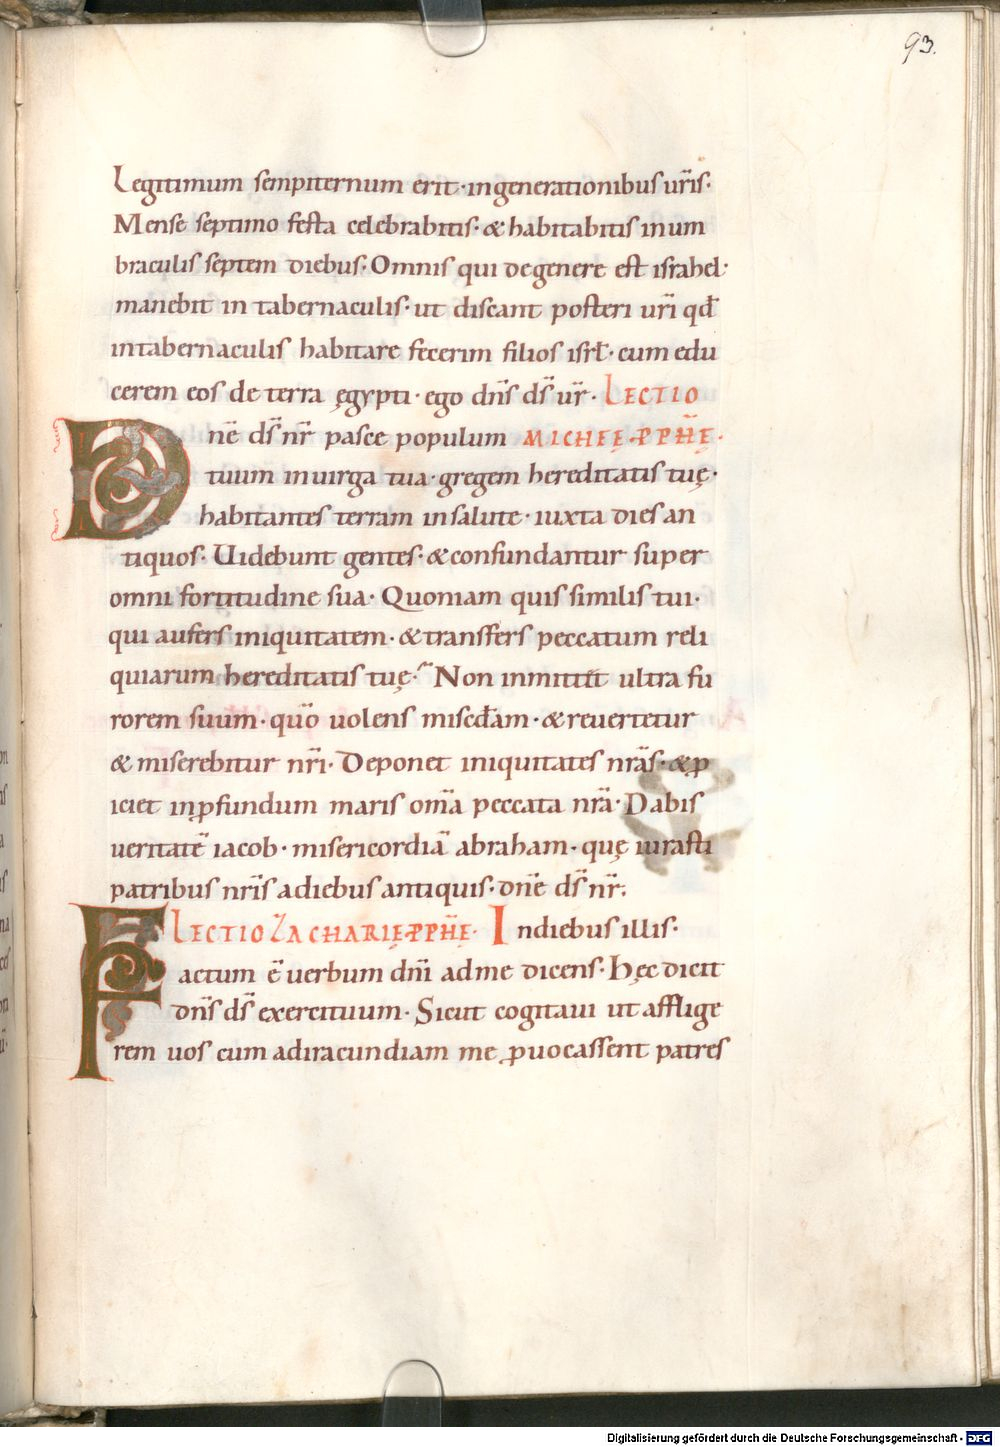 93.
Legitimum sempiternum erit· in generationibus ur̄is·
Mense septimo festa celebrabitis· & habitabitis in um
braculis septem diebus· Omnis qui de genere est israhel·
manebit in tabernaculis· ut discant posteri ur̄i qđ
in tabernaculis habitare fecerim filios isrł· cum edu
cerem eos de terra ęgypti· ego dn̄s ds̄ ur̄· LECTIO
Dne ds̄ nr̄ pasce populum MICHEĘ·PPHĒ·
tuum in uirga tua· gregem hereditatis tuę·
habitantes terram in salute· iuxta dies an
tiquos· Uidebunt gentes· & confundantur super
omni fortitudine sua· Quoniam quis similis tui·
qui aufers iniquitatem· & transfers peccatum reli
quiarum hereditatis tuę· Non inmittet ultra fu
rorem suum· quō uolens misc̄dam· & reuertetur
& miserebitur nr̄i· Deponet iniquitates nr̄as· & ꝓ
iciet in ꝓfundum maris om̄a peccata nr̄a· Dabis
ueritatē iacob· misericordiā abraham· quę iurasti
patribus nr̄is a diebus antiquis· dn̄e ds̄ nr̄·
LECTIO ZACHARIĘ·PPHĘ· In diebus illis·
Factum ē uerbum dn̄i ad me dicens· Hęc dicit
dn̄s ds̄ exercituum· Sicut cogitaui ut afflige
rem uos cum ad iracundiam me ꝓuocassent patres
Digitalisierung gefördert durch die Deutsche Forschungsgemeinschaft - DFG